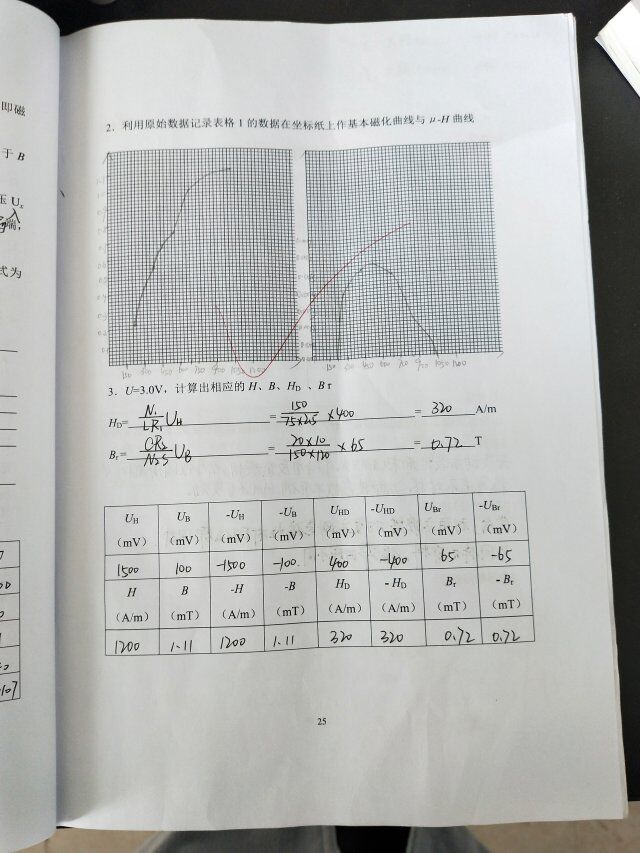 即磁
于 B
压 Uₓ
入
端;
式为
2．利用原始数据记录表格 1 的数据在坐标纸上作基本磁化曲线与 μ-H 曲线
150 300 450 600 750 900 1050 1200
150 300 450 600 750 900 1050 1200
3．U=3.0V，计算出相应的 H、B、HD 、Br
HD= N₁/LR₁ UH = 150/75×2.5 ×400 = 320 A/m
Br= CR₂/N₂S UB = 20×10/150×120 ×65 = 0.72 T
UH (mV) UB (mV) -UH (mV) -UB (mV) UHD (mV) -UHD (mV) UBr (mV) -UBr (mV)
1500 100 -1500 -100 400 -400 65 -65
H (A/m) B (mT) -H (A/m) -B (mT) HD (A/m) - HD (A/m) Br (mT) - Br (mT)
1200 1.11 1200 1.11 320 320 0.72 0.72
25